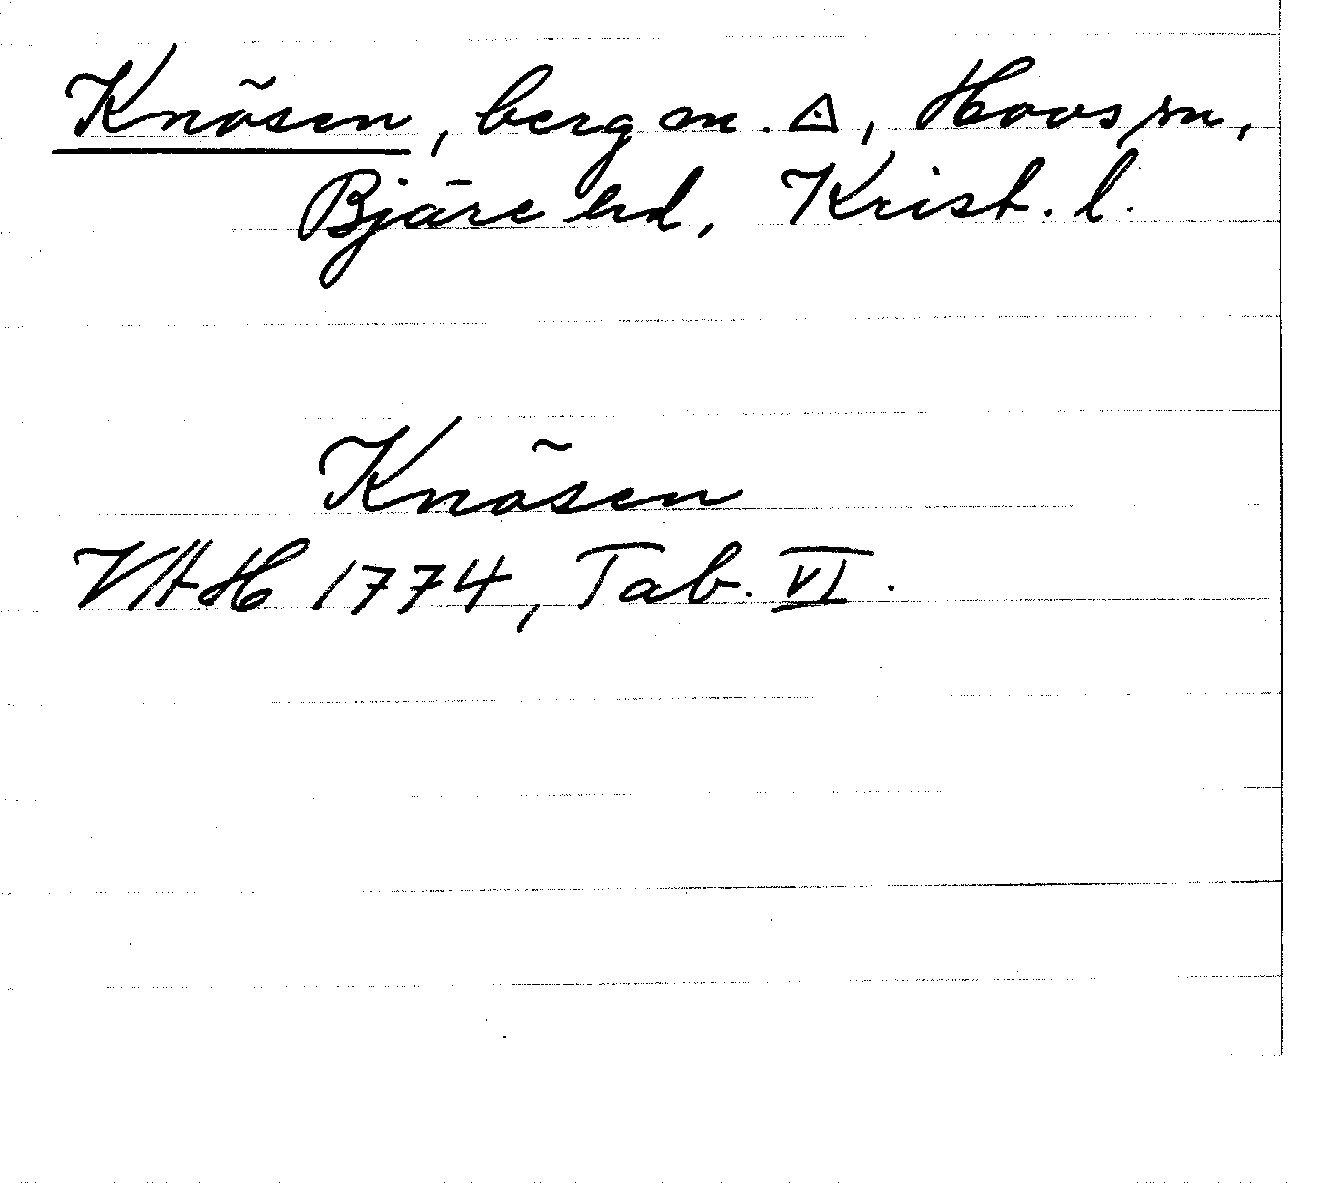 Knösen, berg m. △, Hovs sn,
Bjäre hd, Krist. l.
Knösen
VAH 1774, Tab. VI.